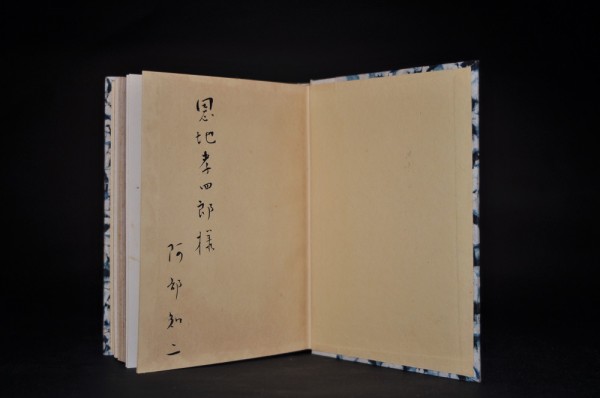 恩地孝四郎様
阿部知二